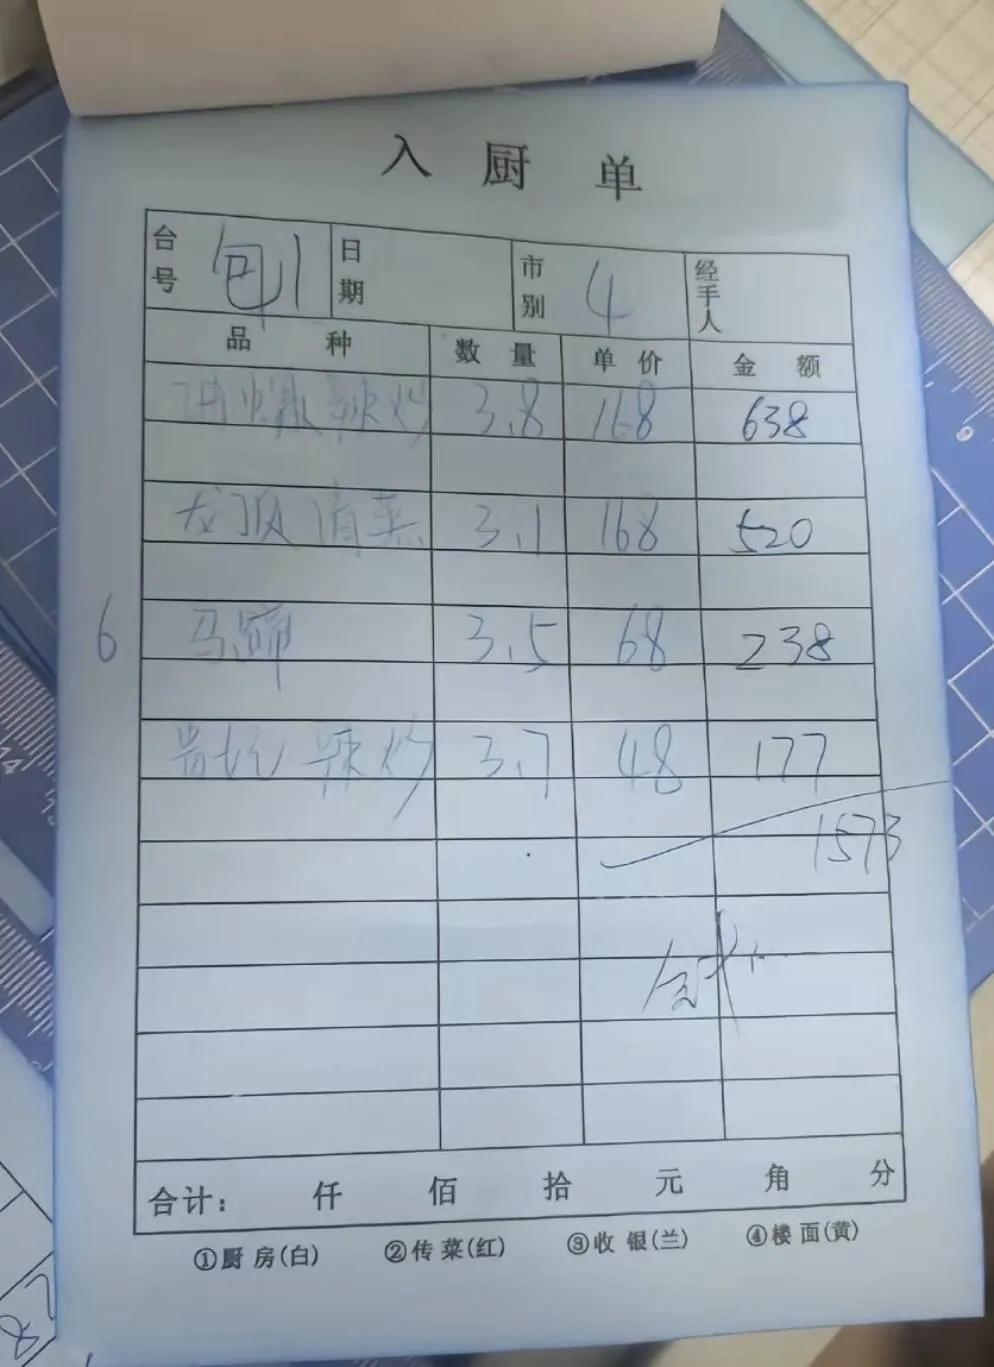 入厨单
台号 包1 日期 市别 4 经手人
品种 数量 单价 金额
油爆辣炒 3.8 168 638
3.1 168 520
6 马蹄 3.5 68 238
辣炒 3.7 48 177
1573
合计： 仟 佰 拾 元 角 分
①厨房(白) ②传菜(红) ③收银(兰) ④楼面(黄)